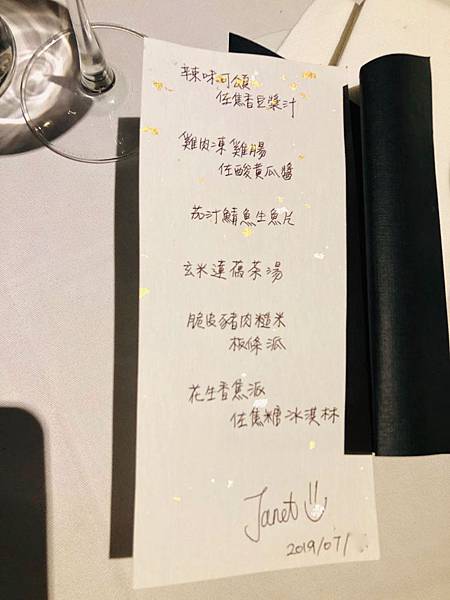 辣味可頌
佐焦香豆漿汁
雞肉凍雞腸
佐酸黃瓜醬
茄汁鯖魚生魚片
玄米蓮藕茶湯
脆皮豬肉糙米
板條派
花生香蕉派
佐焦糖冰淇林
Janet
2019/07/